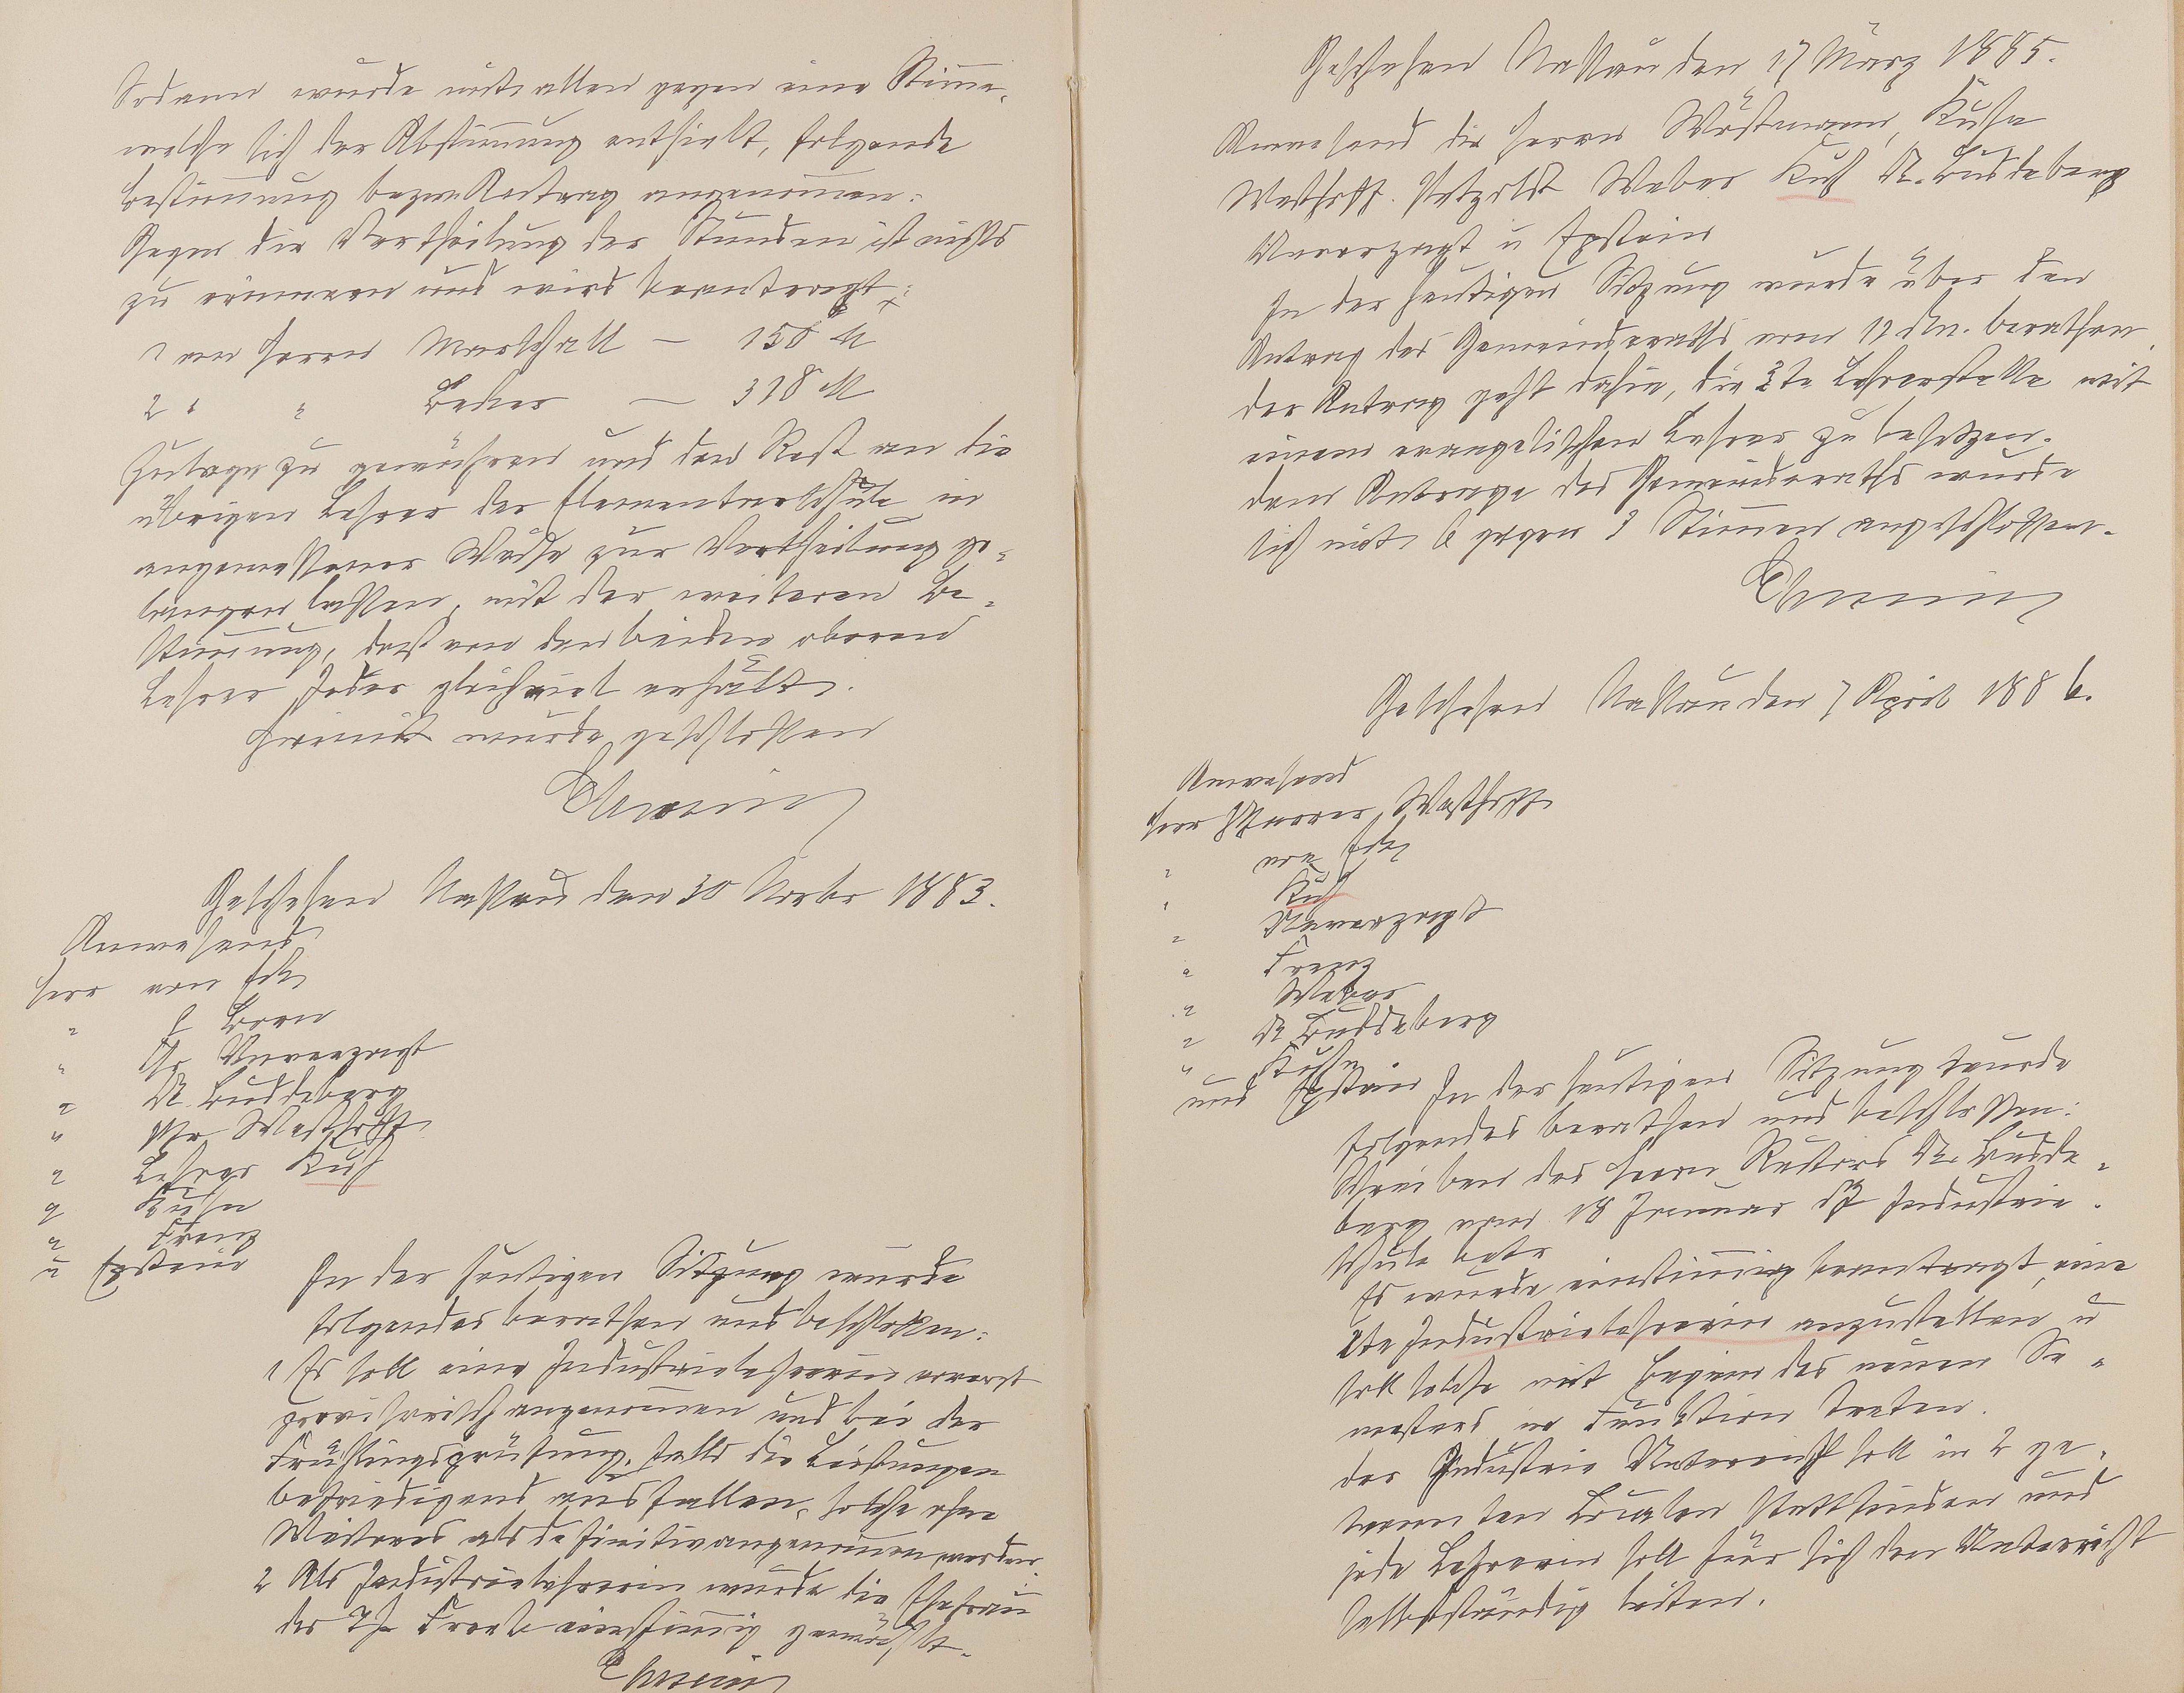 Sodann wurde mit allen gegen eine Stimme,
welche sich der Abstimmung enthielt, folgende
Bestimmung bezw. Antrag angenommen:
Gegen die Vertheilung der Stunden ist nichts
zu erinnern und wird beantragt:
1 an Herrn Marschall — 150 M
2 " " Becker — 318 M
Zulage zu gewähren und den Rest an die
übrigen Lehrer der Elementarschule in
angemessener Weise zur Vertheilung ge-
langen lassen, mit der weiteren Be-
stimmung, daß von den beiden oberen
Lehrer Jeder gleichviel erhält.
Hiermit wurde geschlossen
Geschehen Nassau den 30 Novbr 1883.
Anwesend
Herr von Eck
" Born
" Unverzagt
" Dr. Buddeberg
" Pfr Westhoff
" Lehrer Kuh
" Kuhn
" Franz
u Epstein
In der heutigen Sitzung wurde
folgendes berathen und beschlossen:
1 Es soll eine Industrielehrerin vorerst
provisorisch angenommen und bei der
Frühlingsprüfung, falls die Leistungen
befriedigend ausfallen, solche ohne
Weiteres als definitiv angenommen werden.
2 Als Industrielehrerin wurde die Ehefrau
des einstimmig gewählt.
Geschehen Nassau den 17 März 1885.
Anwesend die Herrn Wöstmann, Kuhn
Westhoff. Weber Kuh Dr. Buddeberg
Unverzagt u Epstein
In der heutigen Sitzung wurde über den
Antrag des Gemeinderaths vom 12 berathen.
der Antrag geht dahin, die 3te Lehrerstelle mit
einem evangelischen Lehrer zu besetzen.
dem Antrage des Gemeinderaths wurde
sich mit 6 gegen 3 Stimmen angeschlossen.
Geschehen Nassau den 7 April 1886.
Anwesend
Herr Pfarrer Westhoff
" von Eck
" Kuh
" Unverzagt
" Franz
" Weber
" Dr Buddeberg
" Kuhn
und Epstein In der heutigen Sitzung wurde
folgendes berathen und beschlossen:
Schreiben des Herrn Rektors Dr. Budde-
berg vom 18 Januar Industrie-
schule betr
Es wurde einstimmig beantragt, eine
2te Industrielehrerin anzustellen u
soll solche mit Beginn des neuen Se-
mesters in Funktion treten.
der Industrie Unterricht soll in 2 ge-
trennten Localen stattfinden und
jede Lehrerin soll für sich den Unterricht
selbstständig leiten.